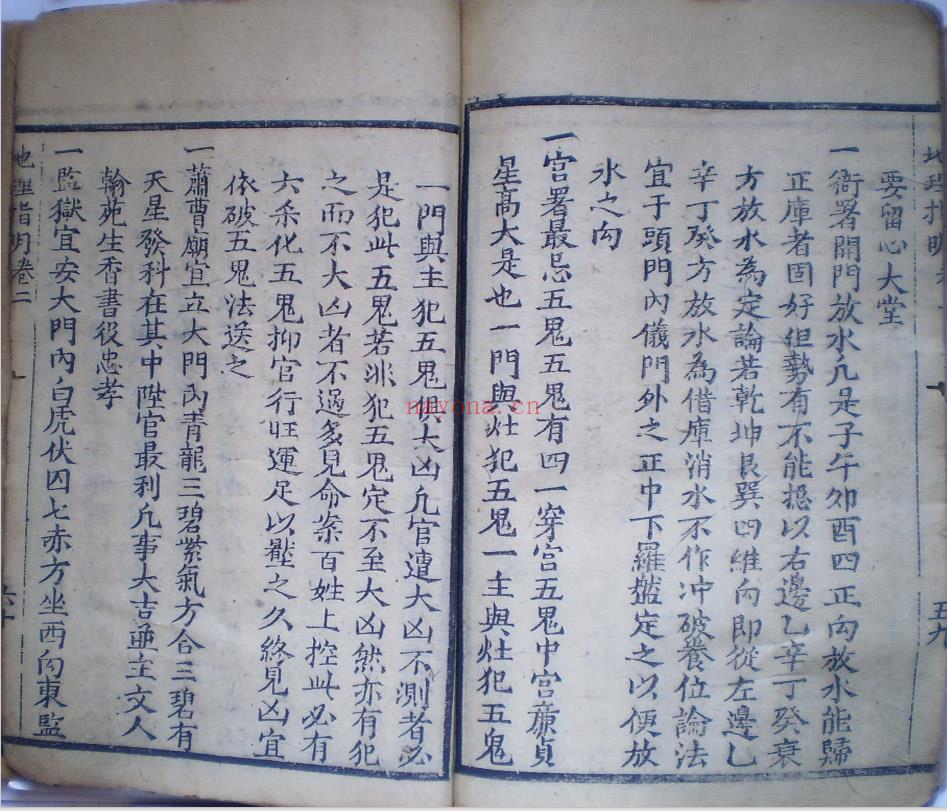 地理指明
五九
要留心大堂
一衙署開門放水凢是子午卯酉四正向放水能歸
正庫者固好但勢有不能揔以右邊乙辛丁癸衰
方放水為定論若乾坤艮巽四維向即從左邊乙
辛丁癸方放水為借庫消水不作冲破養位論法
宜于頭門內儀門外之正中下羅盤定之以便放
水之向
一宫署最忌五鬼五鬼有四一穿宫五鬼中宫廉貞
星高大是也一門與灶犯五鬼一主與灶犯五鬼
一門與主犯五鬼俱大凶凢官遭大凶不測者必
是犯此五鬼若非犯五鬼定不至大凶然亦有犯
之而不大凶者不過多見命案百姓上控此必有
六杀化五鬼抑官行旺運足以壓之久終見凶宜
依破五鬼法送之
一蕭曹廟宜立大門內青龍三碧紫氣方合三碧有
天星發科在其中陞官最利凢事大吉並主文人
翰苑生香書役忠孝
一監獄宜安大門內白虎伏囚七赤方坐西向東監
地理指明卷二
六十
navona.cn